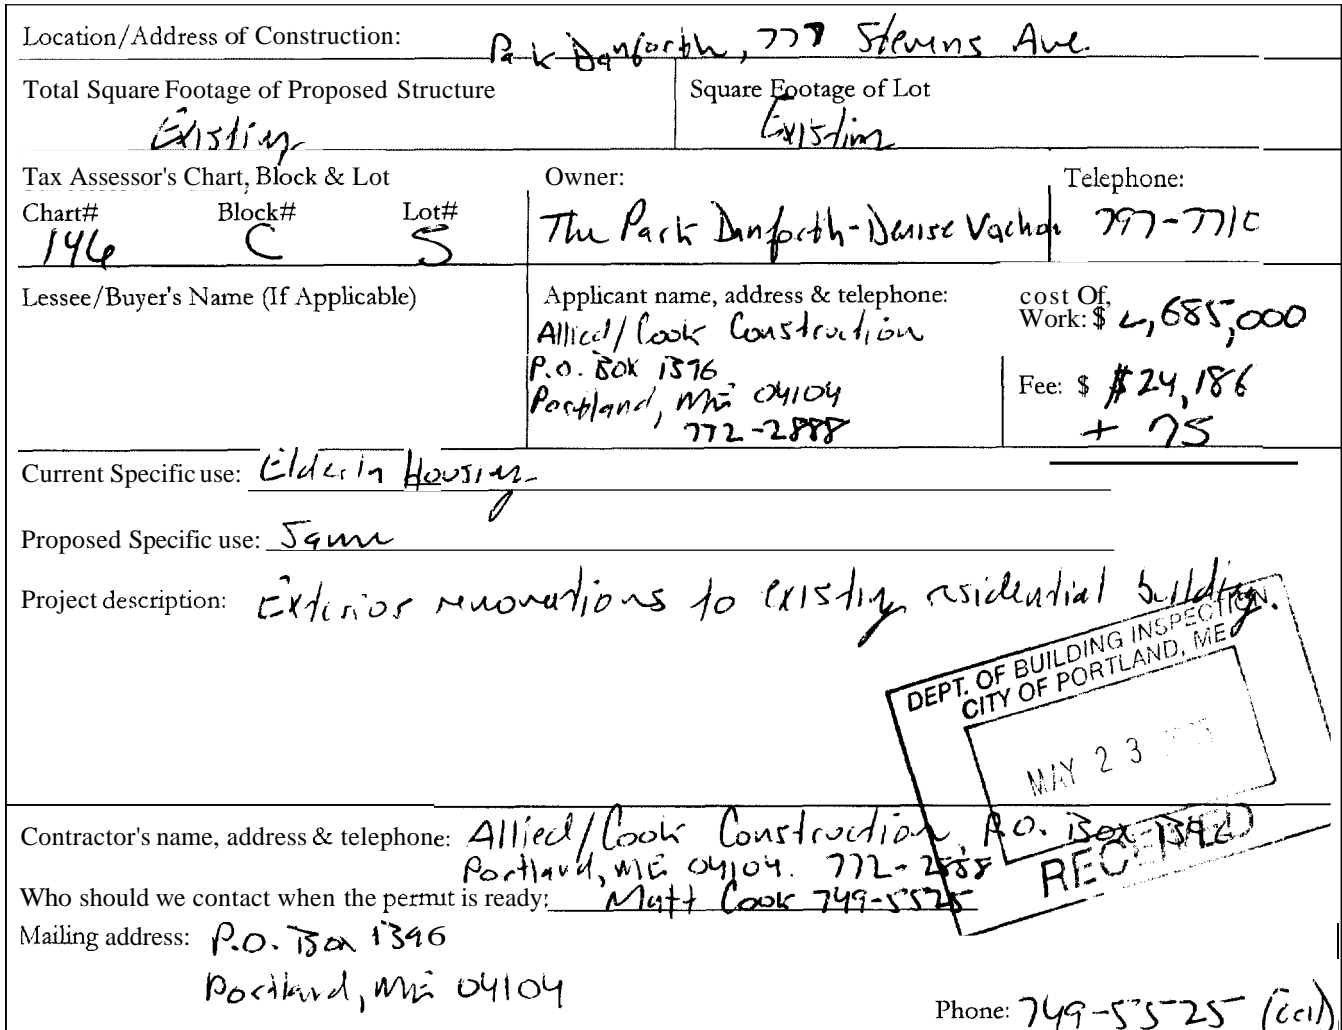 Location/Address of Construction: Park Danforth, 777 Stevens Ave.
Total Square Footage of Proposed Structure
Existing
Square Footage of Lot
Existing
Tax Assessor's Chart, Block & Lot
Chart# Block# Lot#
146 C 5
Owner:
The Park Danforth-Denise Vachon
Telephone:
797-7710
Lessee/Buyer's Name (If Applicable)
Applicant name, address & telephone:
Allied/Cook Construction
P.O. Box 1396
Portland, ME 04104
772-2888
cost Of,
Work: $ 2,685,000
Fee: $ $24,186
+ 75
Current Specific use: Elderly Housing
Proposed Specific use: Same
Project description: Exterior renovations to existing residential building.
DEPT. OF BUILDING INSPECTION
CITY OF PORTLAND, ME
MAY 23
RECEIVED
Contractor's name, address & telephone: Allied/Cook Construction P.O. Box 1396
Portland, ME 04104. 772-2888
Who should we contact when the permit is ready: Matt Cook 749-5525
Mailing address: P.O. Box 1396
Portland, ME 04104
Phone: 749-5525 (cell)